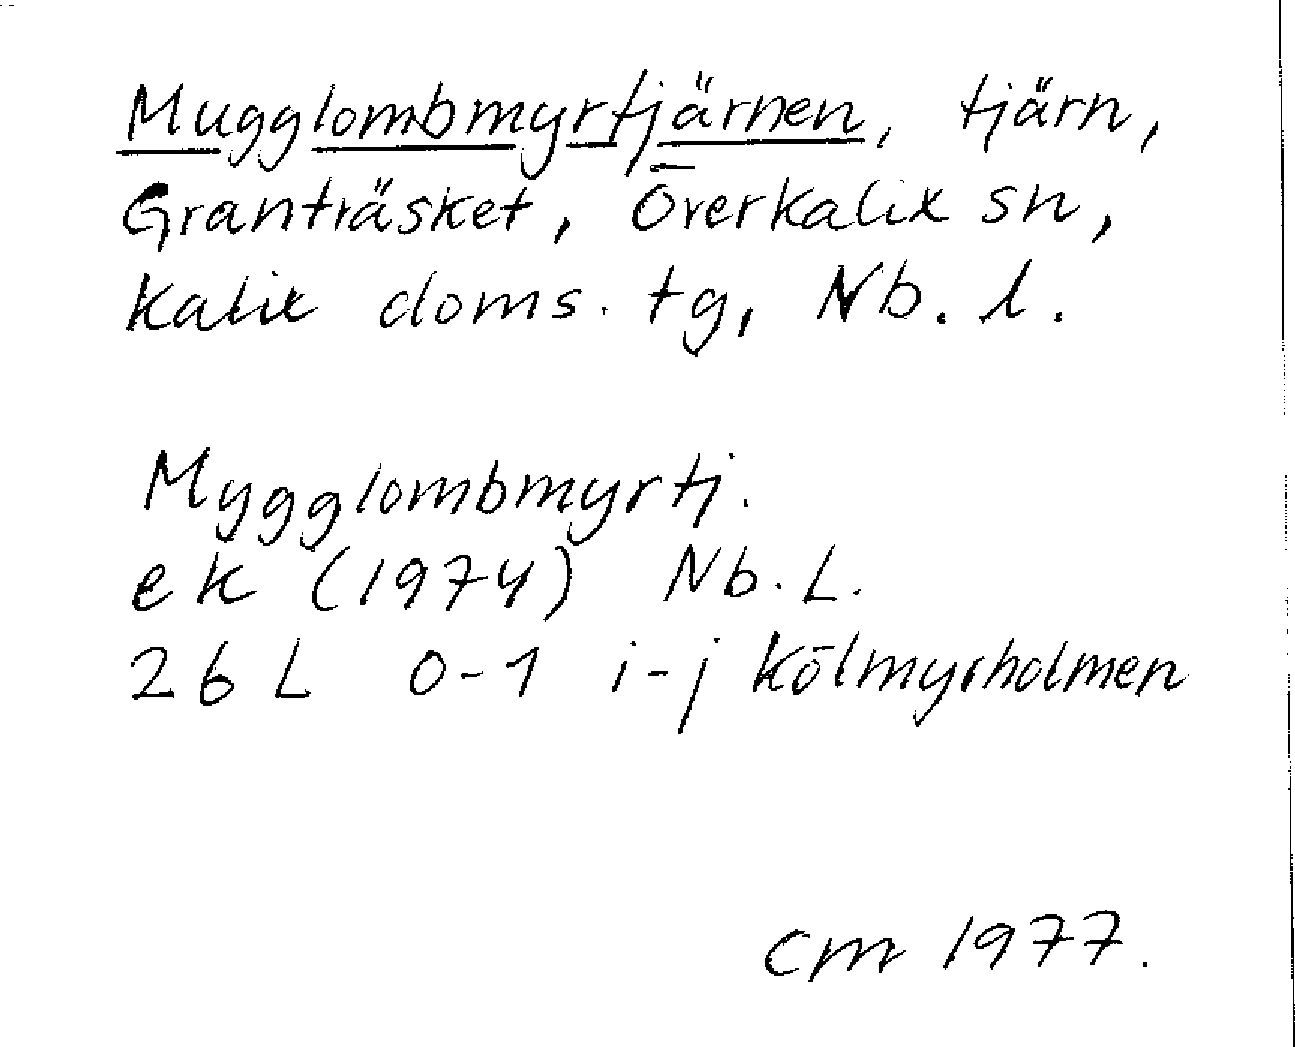 Mugglombmyrtjärnen, tjärn,
Granträsket, Överkalix sn,
Kalix doms. tg, Nb. l.
Mygglombmyrtj.
ek (1974) Nb. L.
26 L 0-1 i-j Kölmyrholmen
CM 1977.